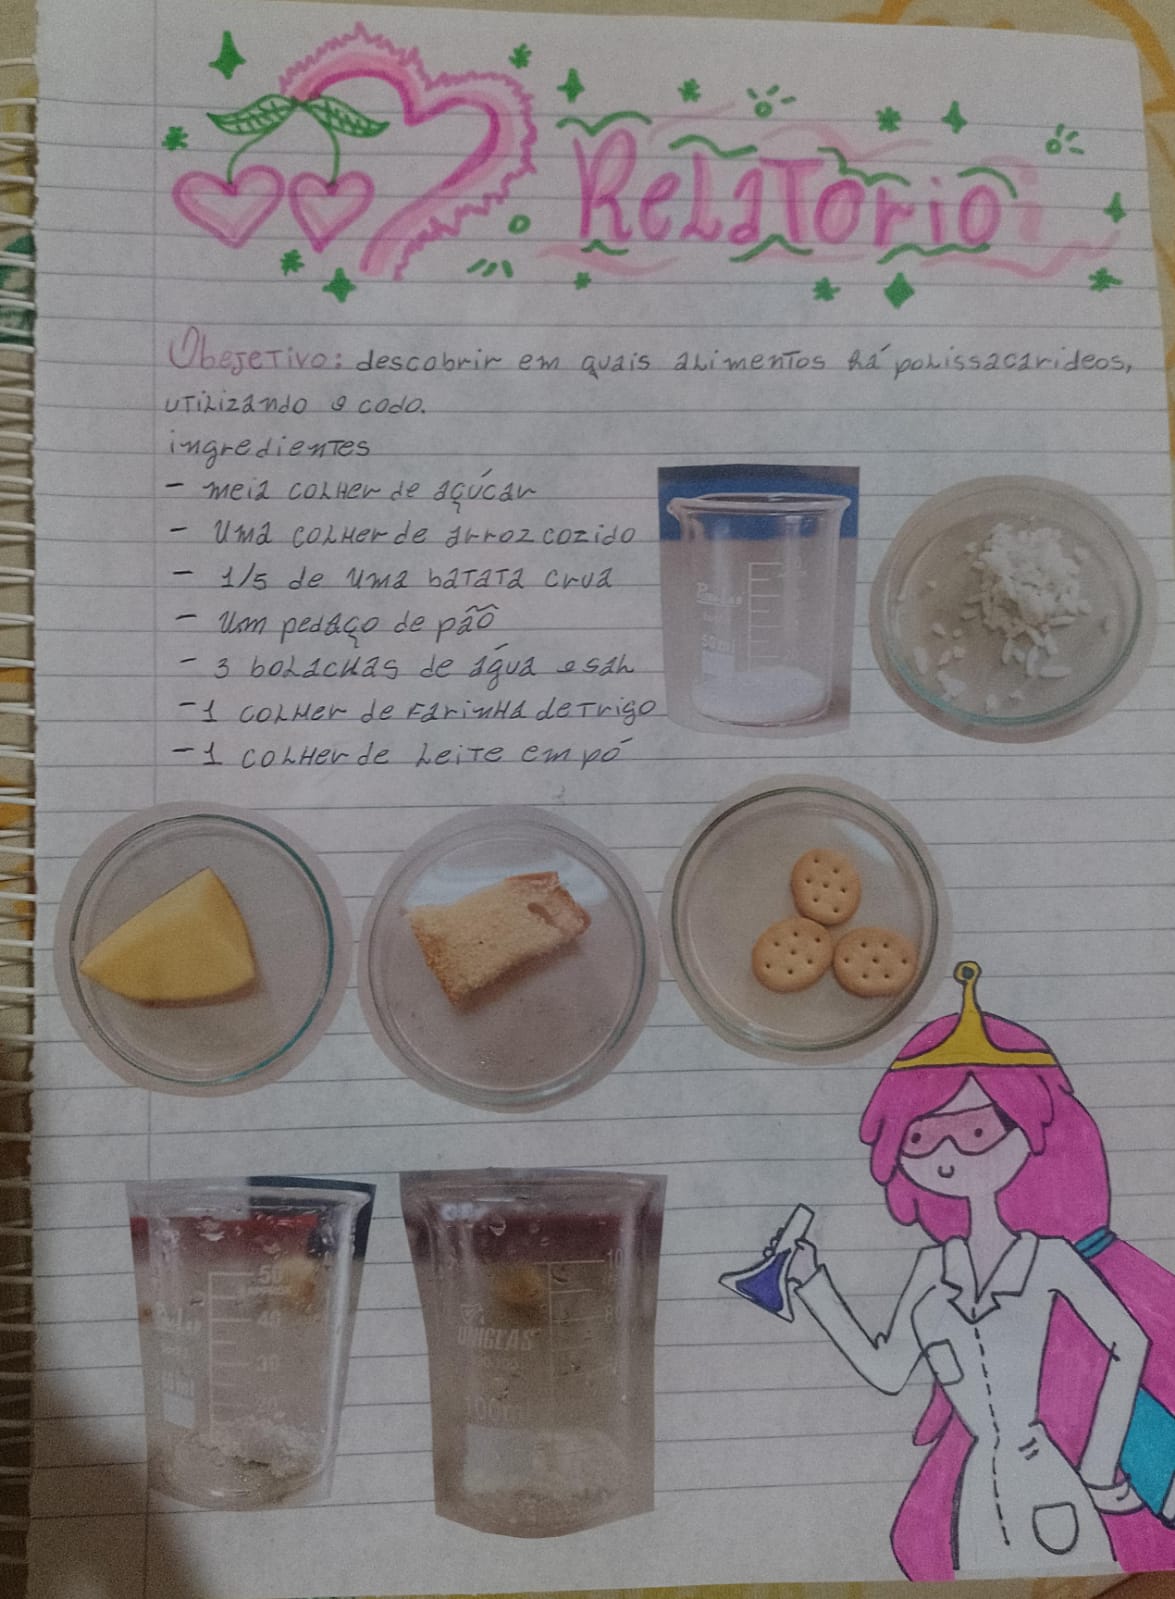 Relatorio
Obejetivo: descobrir em quais alimentos há polissacarideos,
utilizando o codo.
ingredientes
- meia colher de açúcar
- Uma colher de arroz cozido
- 1/5 de uma batata crua
- Um pedaço de pão
- 3 bolachas de água e sal
- 1 colher de farinha de trigo
- 1 colher de leite em pó
50
40
30
20
10
80
UNIGLAS
100ml